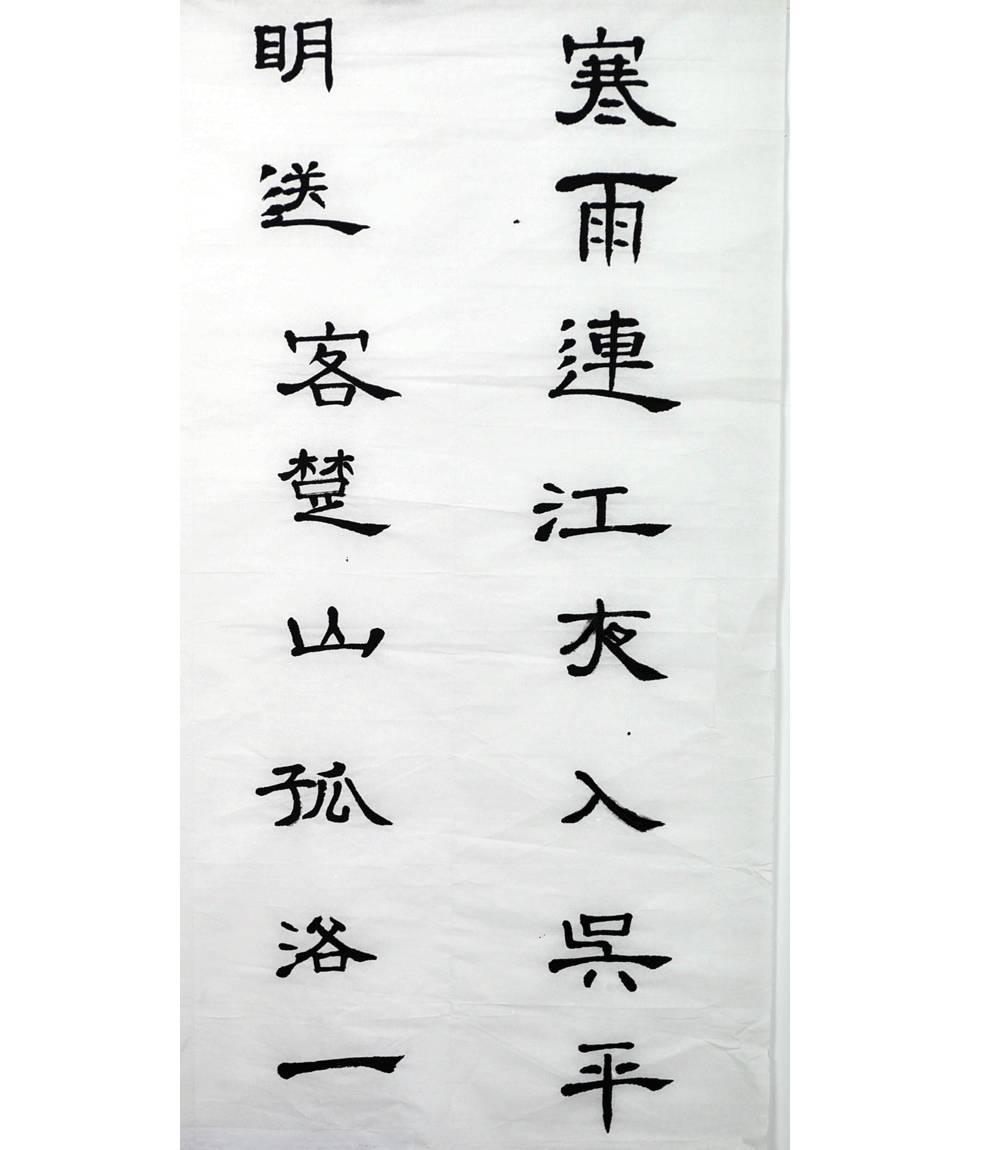 寒雨連江夜入吳平
明送客楚山孤洛一